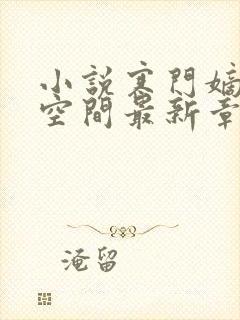 小說寒門嫡
空間最新章
淹留